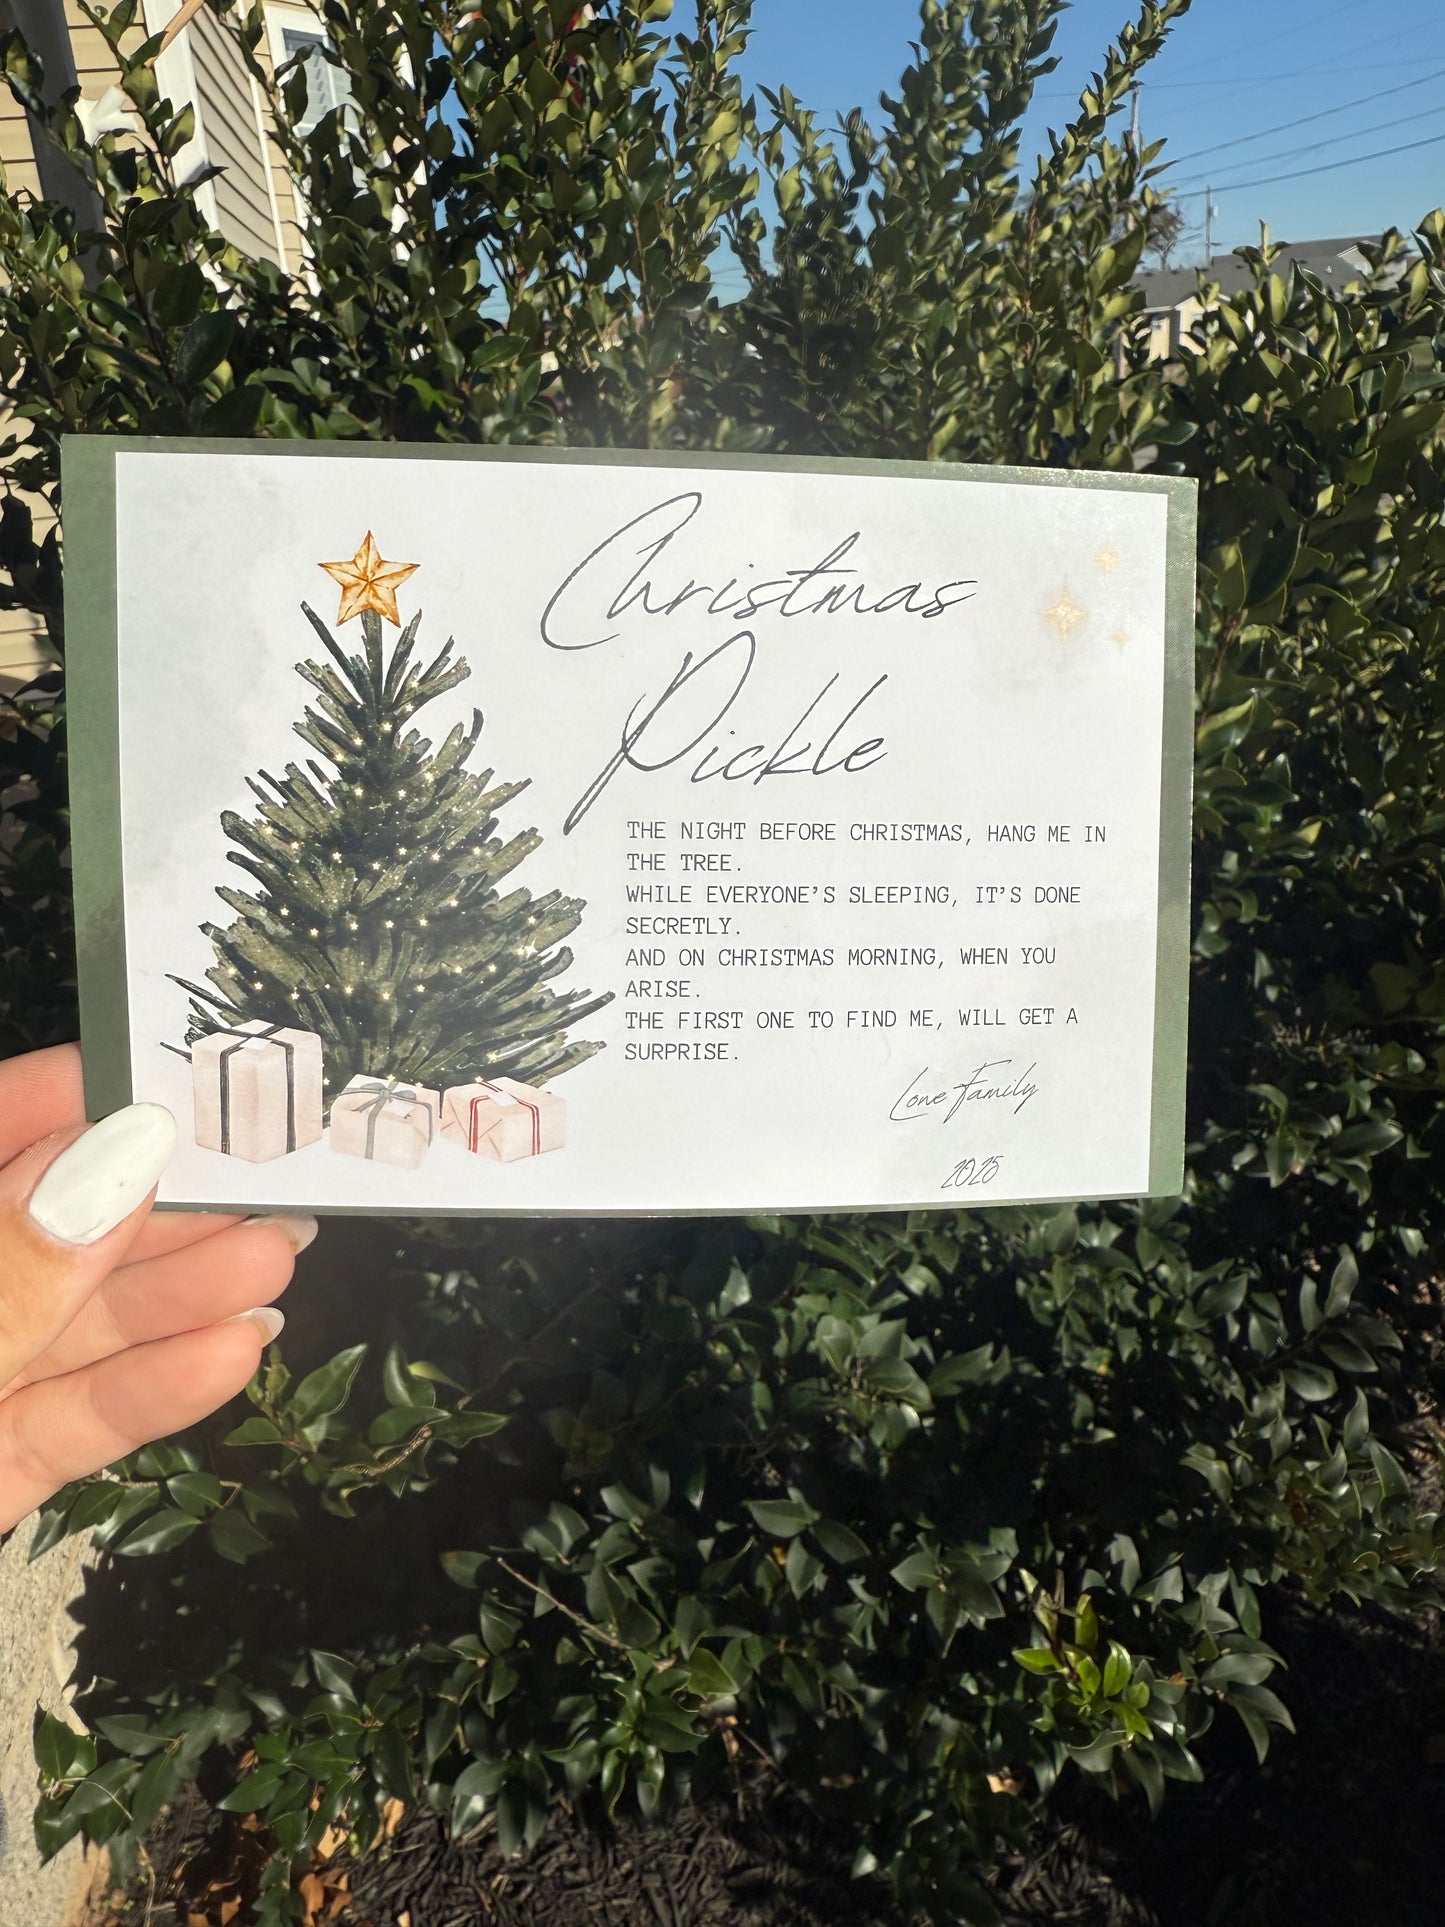 Christmas
Pickle
THE NIGHT BEFORE CHRISTMAS, HANG ME IN
THE TREE.
WHILE EVERYONE'S SLEEPING, IT'S DONE
SECRETLY.
AND ON CHRISTMAS MORNING, WHEN YOU
ARISE.
THE FIRST ONE TO FIND ME, WILL GET A
SURPRISE.
Love Family
2025